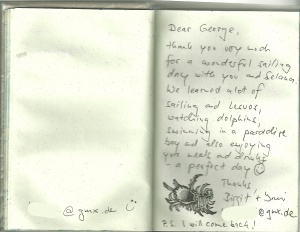 @gmx.de
Dear George,
thank you very much
for a wonderful sailing
day with you and
We learned a lot of
sailing and
watching dolphins,
swimming in a paradise
bay ad also enjoying
your meals and drinks
- a perfect day
Thanks
Birgit +
@gmx.de
P.S. I will come back!